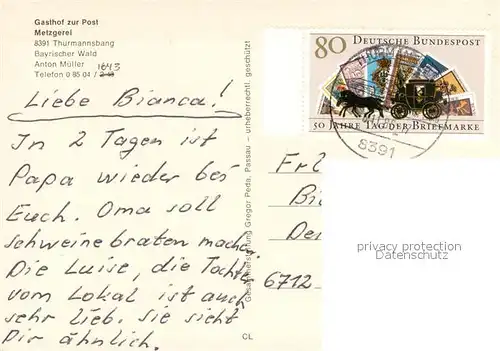 Gasthof zur Post
Metzgerei
8391 Thurmannsbang
Bayrischer Wald
Anton Müller 1643
Telefon 0 85 04 /
Liebe Bianca!
In 2 Tagen ist
Papa wieder bei
Euch. Oma soll
schweinebraten machen.
Die Luise, die Tochter
vom Lokal ist auch
sehr lieb. Sie sieht
Dir ähnlich.
CL
Gesamtherstellung Gregor Peda, Passau – urheberrechtl. geschützt
80 DEUTSCHE BUNDESPOST
50 JAHRE TAG DER BRIEFMARKE
8391
Frl
Bi
Der
6712
privacy protection
Datenschutz